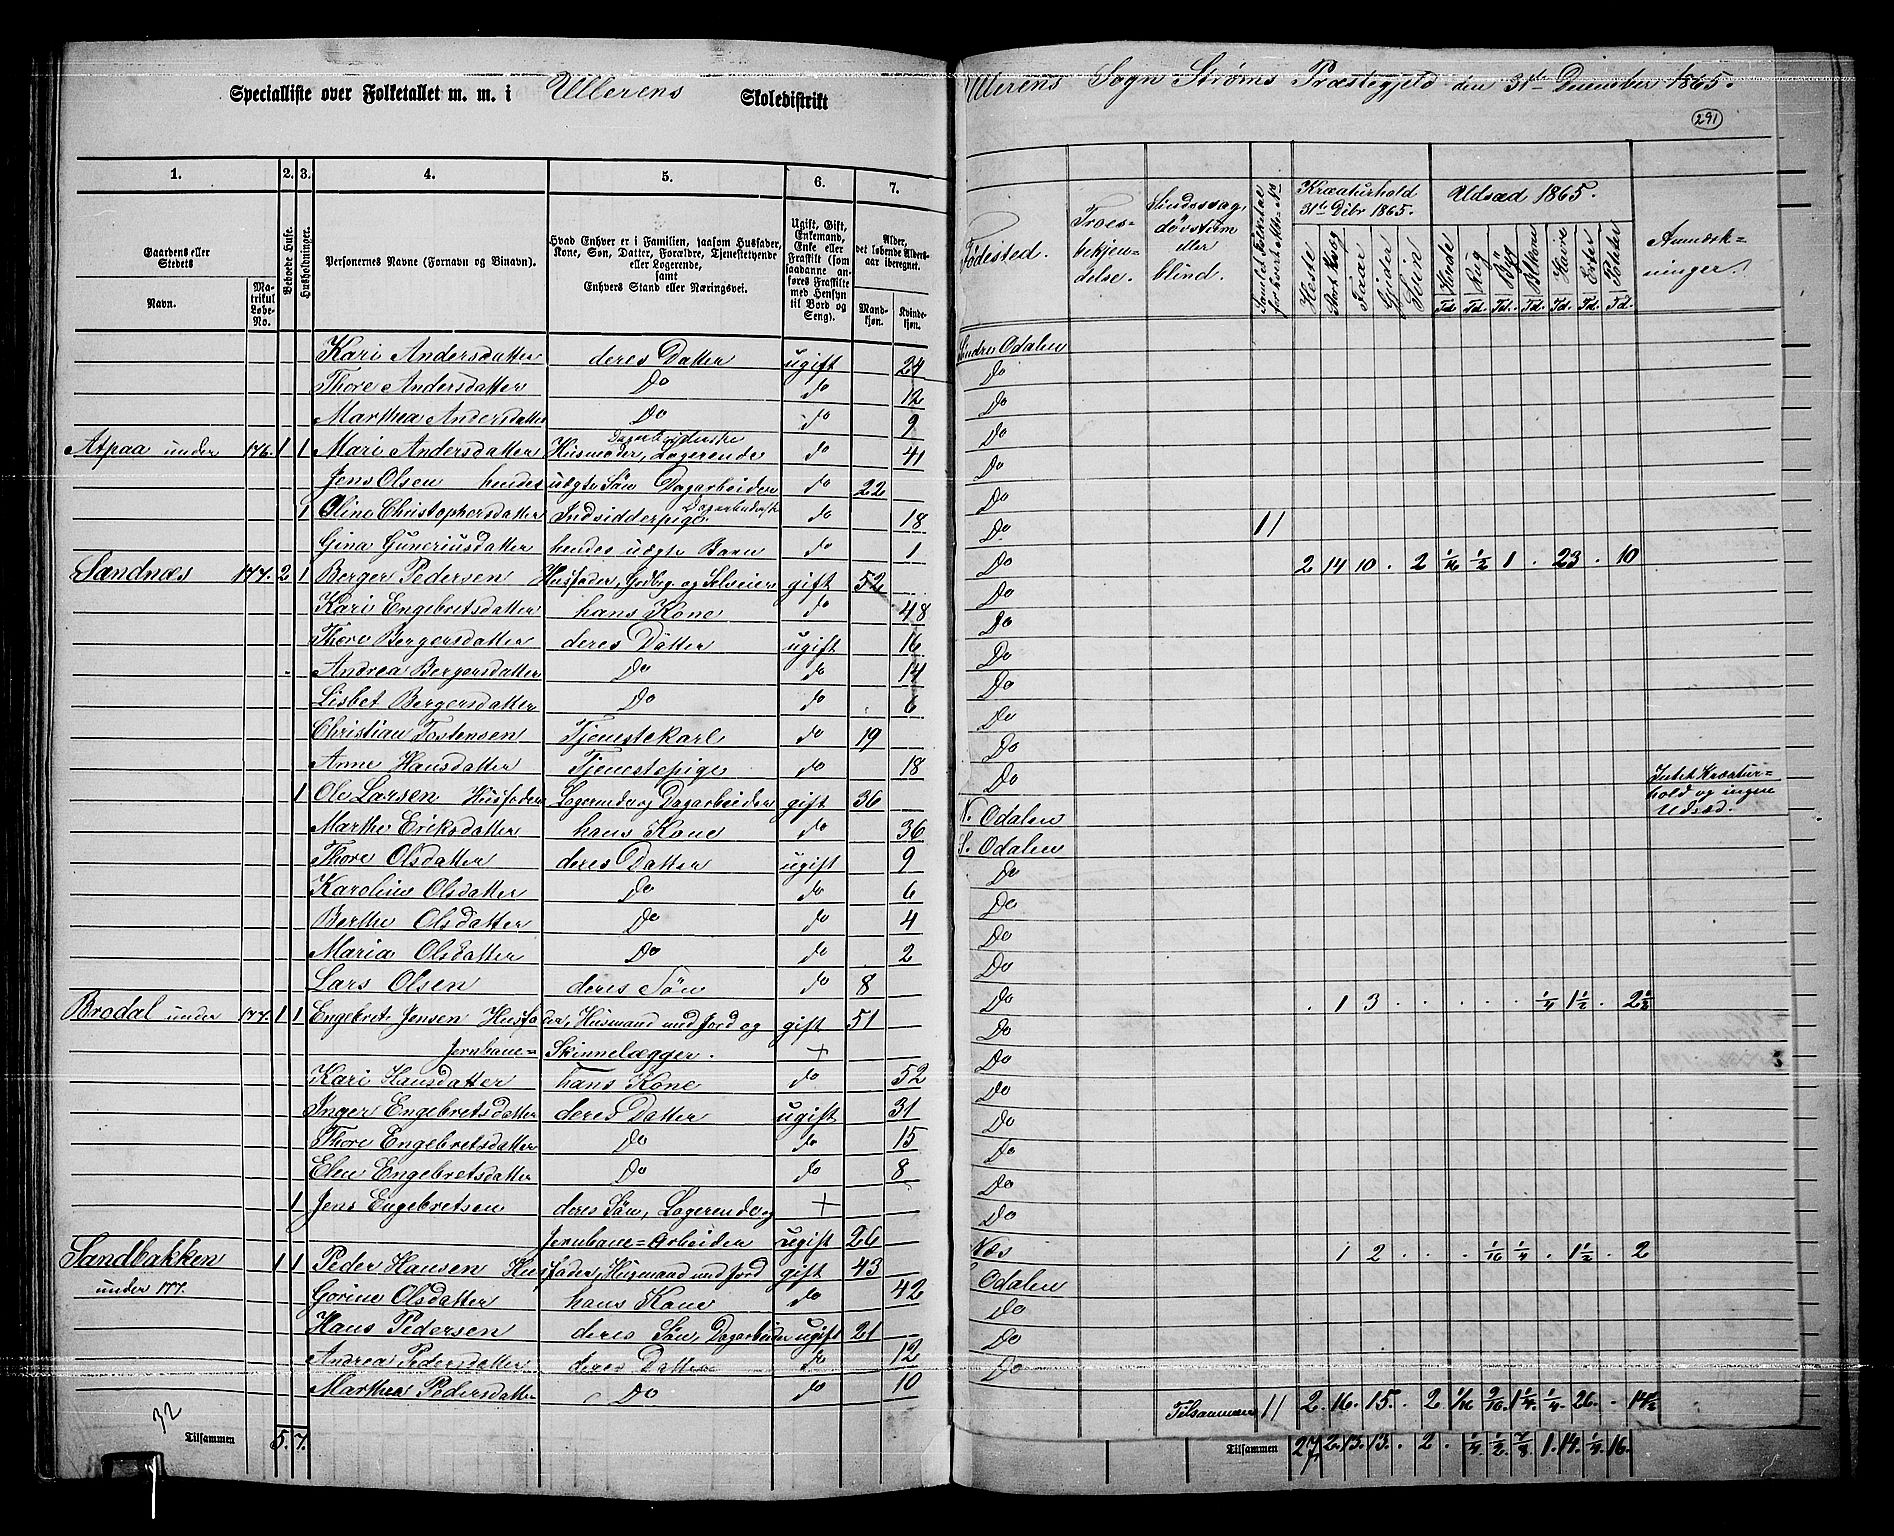 Specialliste over Folketallet m. m. i Ullerens Skoledistrikt
Ullerens Sogn Strøms Præstegjeld den 31te December 1865.
291
1. 2. 3. 4. 5. 6. 7.
Gaardens eller Stedets
Navn.
Matrikul Løbe-No.
Beboede Huse.
Husholdninger.
Personernes Navne (Fornavn og Binavn).
Hvad Enhver er i Familien, saasom Husfader, Kone, Søn, Datter, Forældre, Tjenestetyende eller Logerende,
samt
Enhvers Stand eller Næringsvei.
Ugift, Gift, Enkemand, Enke eller Fraskilt (som saadanne anføres Fraskilte med Hensyn til Bord og Seng).
Alder, det løbende Alders-aar iberegnet.
Mand-kjøn.
Kvinde-kjøn.
Fødested.
Troes-bekjendelse.
Sindssvag, døvstum eller blind.
Kreaturhold 31te Dcbr 1865.
Heste
Faar
Gjeder
Sviin
Udsæd 1865.
Hvede
Rug
Byg
Havre
Erter
Poteter
Td. Td. Td. Td. Td. Td. Td.
Anmærk-ninger.
Kari Andersdatter deres Datter ugift 24 Søndre Odalen
Thore Andersdatter Do do 12 Do
Marthea Andersdatter Do do 9 Do
Atpaa under 176. 1 1 Mari Andersdatter Husmoder, Logerende Dagarbeiderske do 41 Do
Jens Olsen hendes uægte Søn Dagarbeider do 22 Do
1 Oline Christophersdatter Indsidderpige do 18 Do
Gina Guneriusdatter hendes uægte Barn do 1 Do 11
Sandnæs 177. 2 1 Berger Pedersen Husfader, Gdbrg. og Selveier gift 52 Do 2 14 10 . 2 1/16 1/2 1 . 23 . 10
Kari Engebretsdatter hans Kone do 48 Do
Thore Bergersdatter deres Datter ugift 16 Do
Andrea Bergersdatter Do do 14 Do
Lisbet Bergersdatter Do do 6 Do
Christian Tostensen Tjenestekarl do 19 Do
Anne Hansdatter Tjenestepige do 18 Do
1 Ole Larsen Husfader Logerende og Dagarbeider gift 36 N. Odalen Intet Kreatur=hold og ingen Udsæd.
Marthe Eriksdatter hans Kone do 36 S. Odalen
Thore Olsdatter deres Datter ugift 9 Do
Karoline Olsdatter Do do 6 Do
Berthe Olsdatter Do do 4 Do
Maria Olsdatter Do do 2 Do
Lars Olsen deres Søn do 8 Do
Brodal under 177. 1 1 Engebret Jensen Husfader, Husmand med Jord og gift 51 Do . 1 3 . . . . . 1/4 1 1/2 . 2 1/2
Jernbane=Skinnelægger. +
Kari Hansdatter hans Kone do 52 Do
Inger Engebretsdatter deres Datter ugift 31 Do
Thore Engebretsdatter Do do 15 Do
Elen Engebretsdatter Do do 8 Do
1 Jens Engebretsen deres Søn, Logerende og +
Jernbane=Arbeider ugift 26 Do
Sandbakken under 177. 1 1 Peder Hansen Husfader, Husmand med Jord gift 43 Næs 1 2 . . . 1/16 1/4 . 1 1/2 . 2
Gorine Olsdatter hans Kone do 42 Odalen
Hans Pedersen deres Søn Dagarbeider ugift 21 Do
Andrea Pedersdatter deres Datter do 12 Do
Marthea Pedersdatter Do do 10 Do
32
Tilsammen 5. 7.
Tilsammen 11 2. 16. 15. . 2 1/16 9/16 1 1/4 1/4 26. . 14 1/2
Tilsammen 27 2. 13. 13. . 2 . 1/4 1/2 7/8 1. 14. 1/4 16.